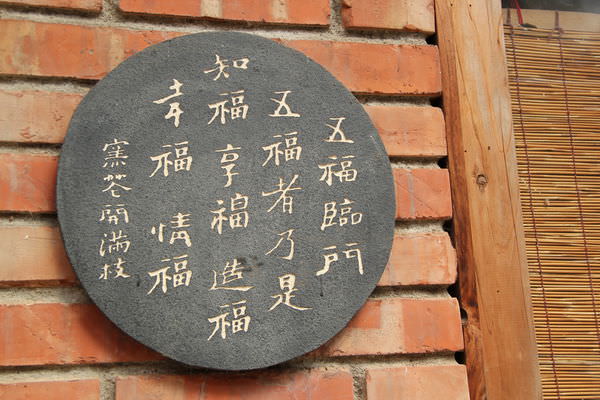 五福臨門
五福者乃是
知福享福造福
幸福情福
窯花開滿枝